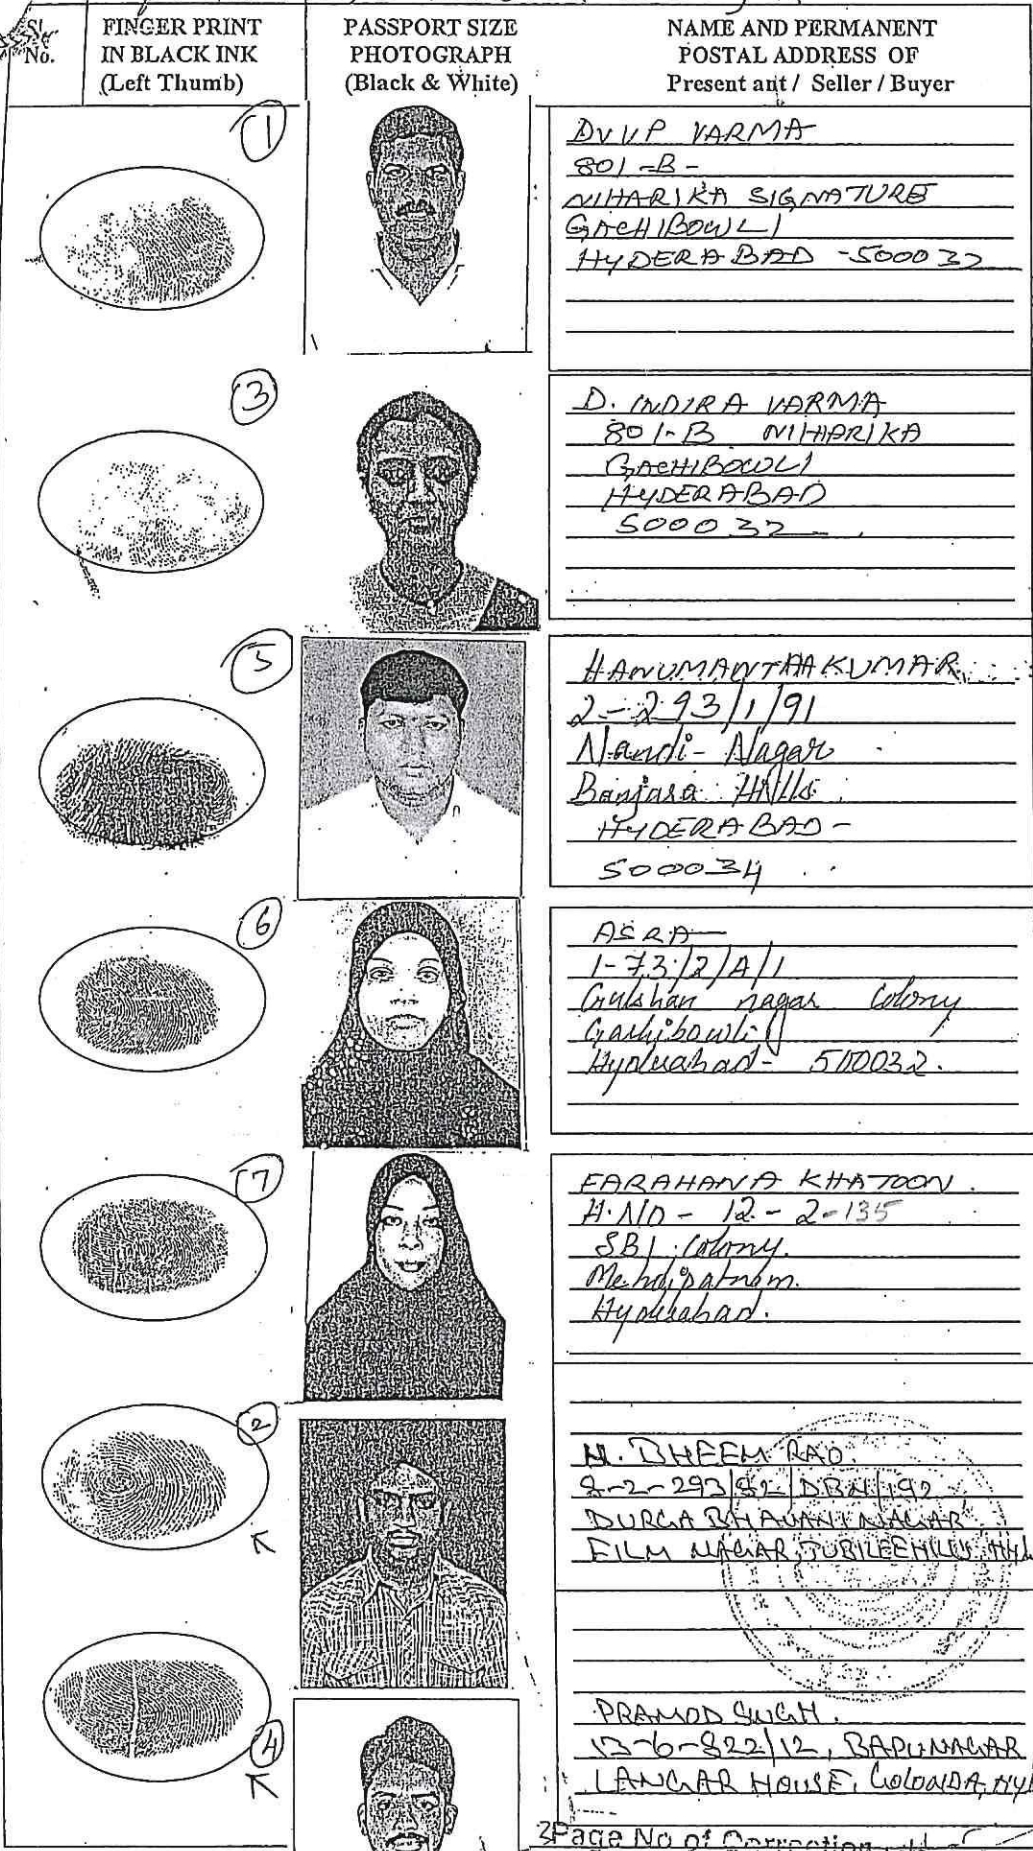 Sl. No.
FINGER PRINT IN BLACK INK (Left Thumb)
PASSPORT SIZE PHOTOGRAPH (Black & White)
NAME AND PERMANENT POSTAL ADDRESS OF Present ant / Seller / Buyer
1
DVVP VARMA
801-B-
NIHARIKA SIGNATURE
GACHIBOWLI
HYDERABAD -500032
3
D. INDIRA VARMA
801-B NIHARIKA
GACHIBOWLI
HYDERABAD
500032
5
HANUMANTHA KUMAR
2-293/1/91
Nandi-Nagar
Banjara Hills
HYDERABAD-
500034
6
ASRA
1-73/2/A/1
Gulshan nagar Colony
Gachibowli
Hyderabad- 500032.
7
FARAHANA KHATOON.
H.NO- 12-2-135
SBI Colony.
Mehdipatnam.
Hyderabad.
2
M. BHEEM RAO.
8-2-293/82/DBN/192
DURGA BHAVANI NAGAR
FILM NAGAR, JUBILEEHILLS, HY
4
PRAMOD SINGH.
13-6-822/12, BAPUNAGAR
LANGAR HOUSE, GOLCONDA, HY
Page No of Correction